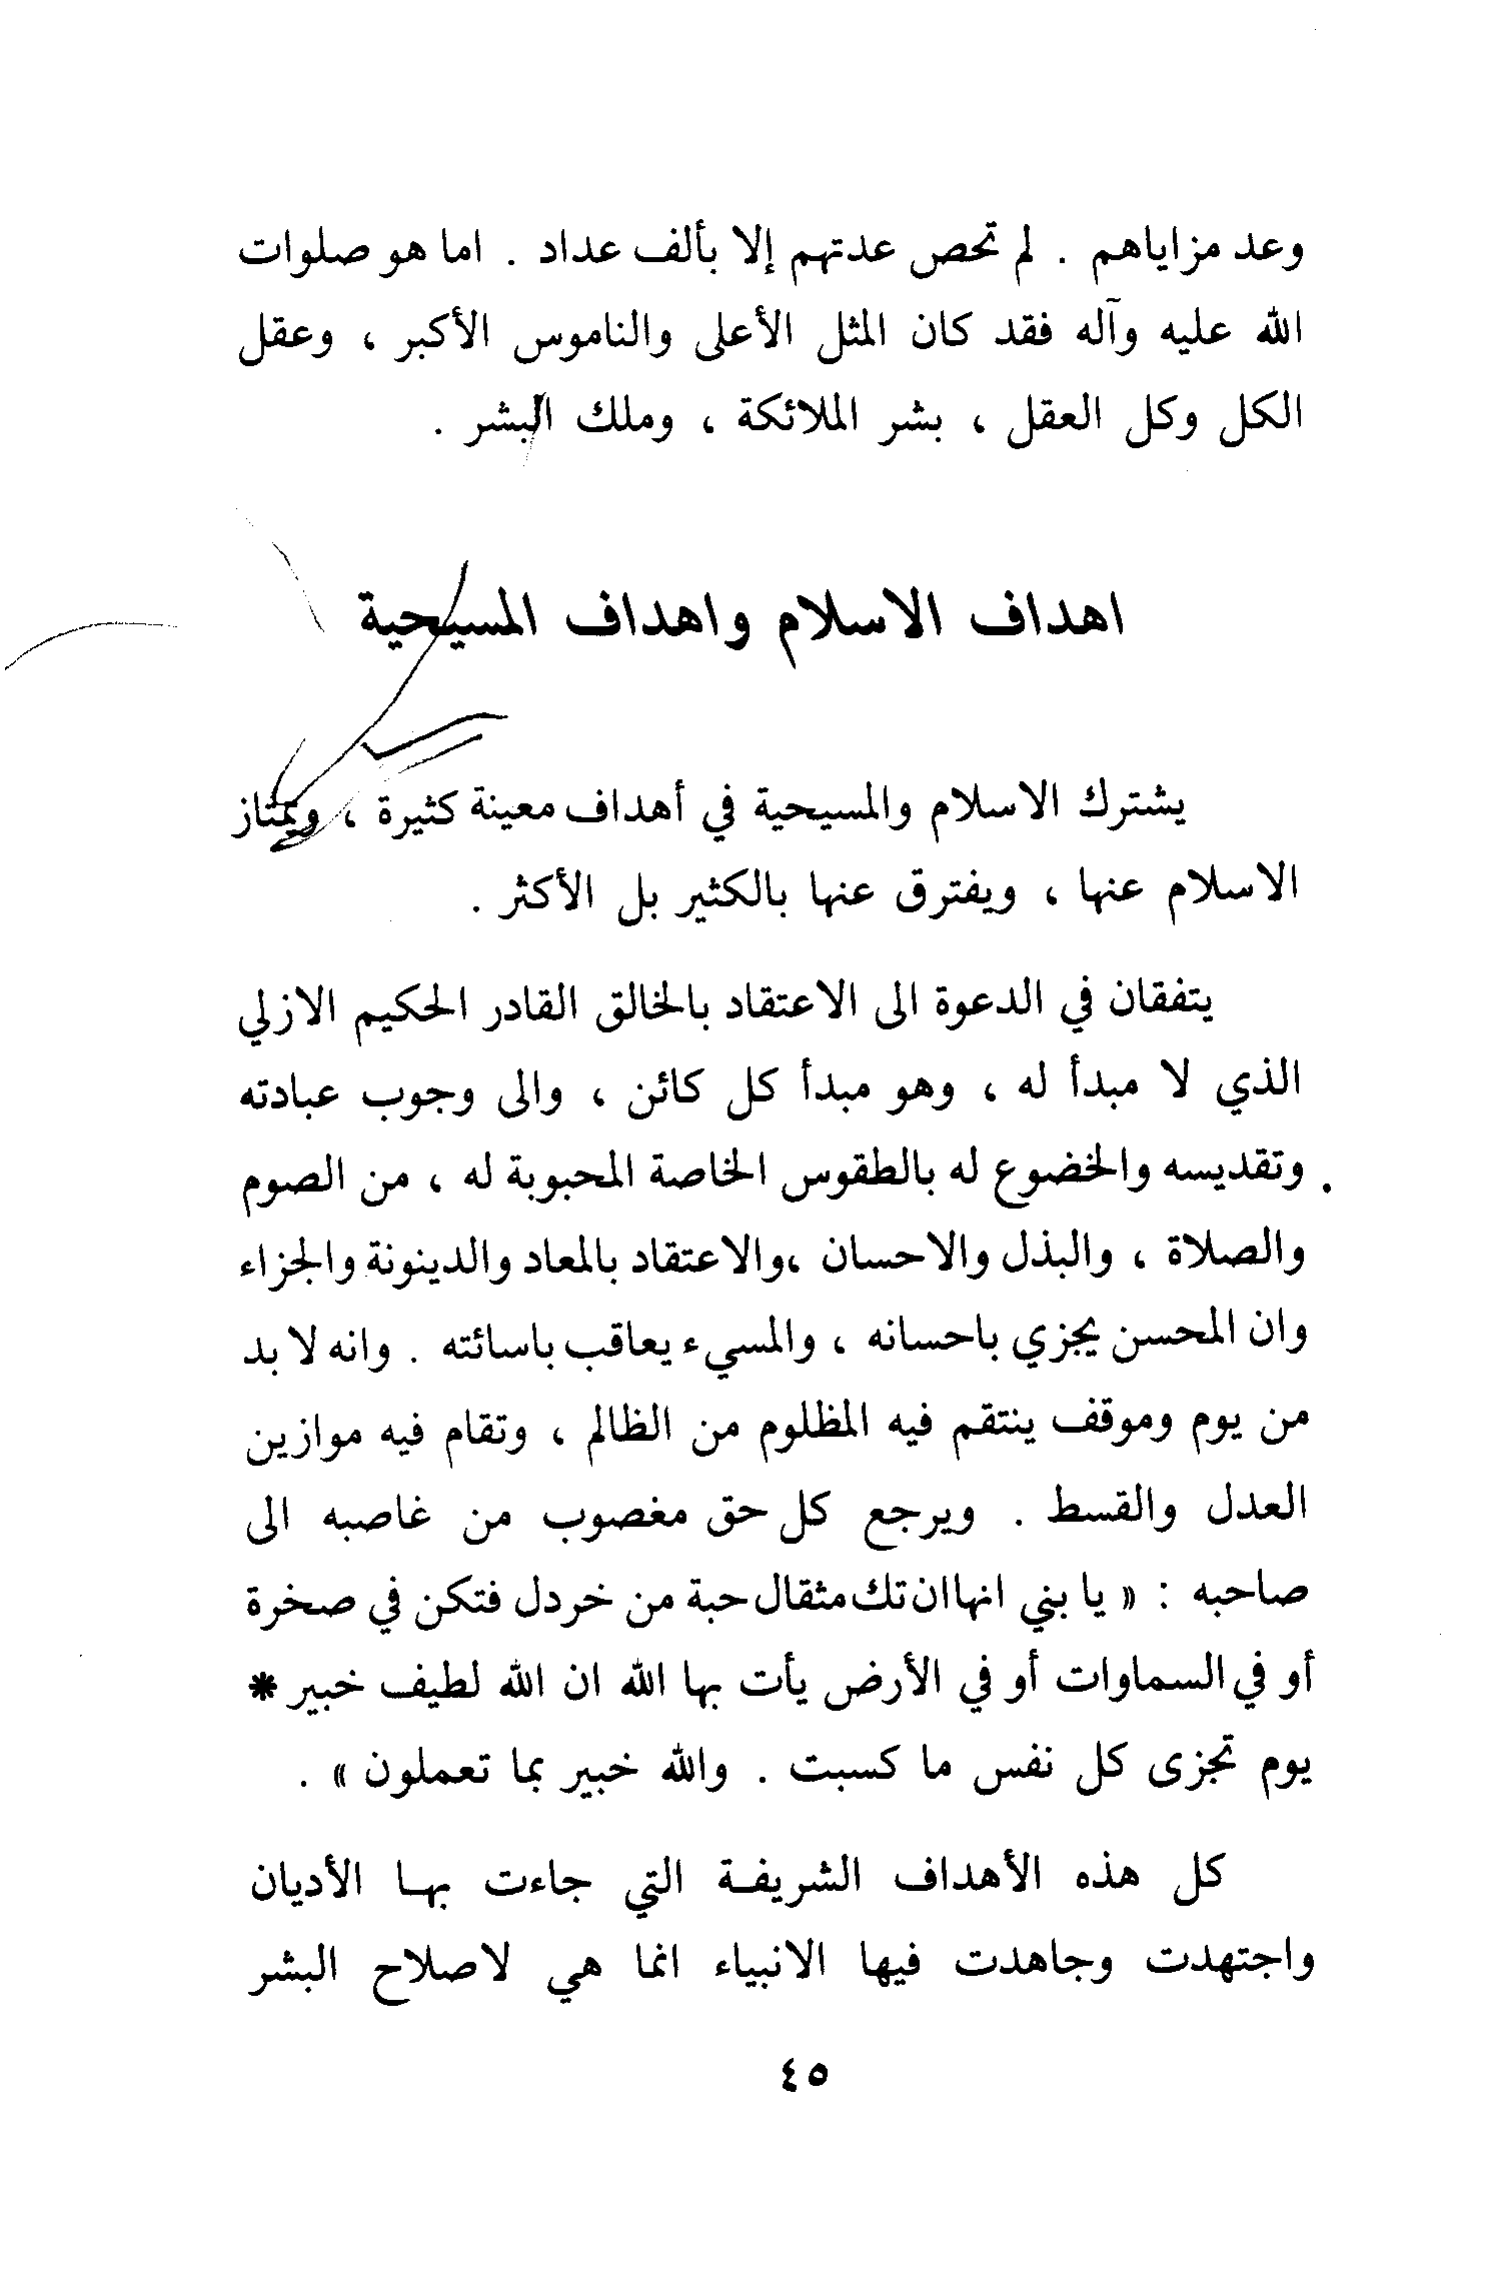 وعد مزاياهم . لم تحص عدتهم إلا بألف عداد . اما هو صلوات
الله عليه وآله فقد كان المثل الأعلى والناموس الأكبر ، وعقل
الكل وكل العقل ، بشر الملائكة ، وملك البشر .
اهداف الاسلام واهداف المسيحية
يشترك الاسلام والمسيحية في أهداف معينة كثيرة ، ويمتاز
الاسلام عنها ، ويفترق عنها بالكثير بل الأكثر .
يتفقان في الدعوة الى الاعتقاد بالخالق القادر الحكيم الازلي
الذي لا مبدأ له ، وهو مبدأ كل كائن ، والى وجوب عبادته
وتقديسه والخضوع له بالطقوس الخاصة المحبوبة له ، من الصوم
والصلاة ، والبذل والاحسان ،والاعتقاد بالمعاد والدينونة والجزاء
وان المحسن يجزي باحسانه ، والمسيء يعاقب باسائته . وانه لا بد
من يوم وموقف ينتقم فيه المظلوم من الظالم ، وتقام فيه موازين
العدل والقسط . ويرجع كل حق مغصوب من غاصبه الى
صاحبه : « يا بني انها ان تك مثقال حبة من خردل فتكن في صخرة
أو في السماوات أو في الأرض يأت بها الله ان الله لطيف خبير *
يوم تجزى كل نفس ما كسبت . والله خبير بما تعملون » .
كل هذه الأهداف الشريفة التي جاءت بها الأديان
واجتهدت وجاهدت فيها الانبياء انما هي لاصلاح البشر
٤٥